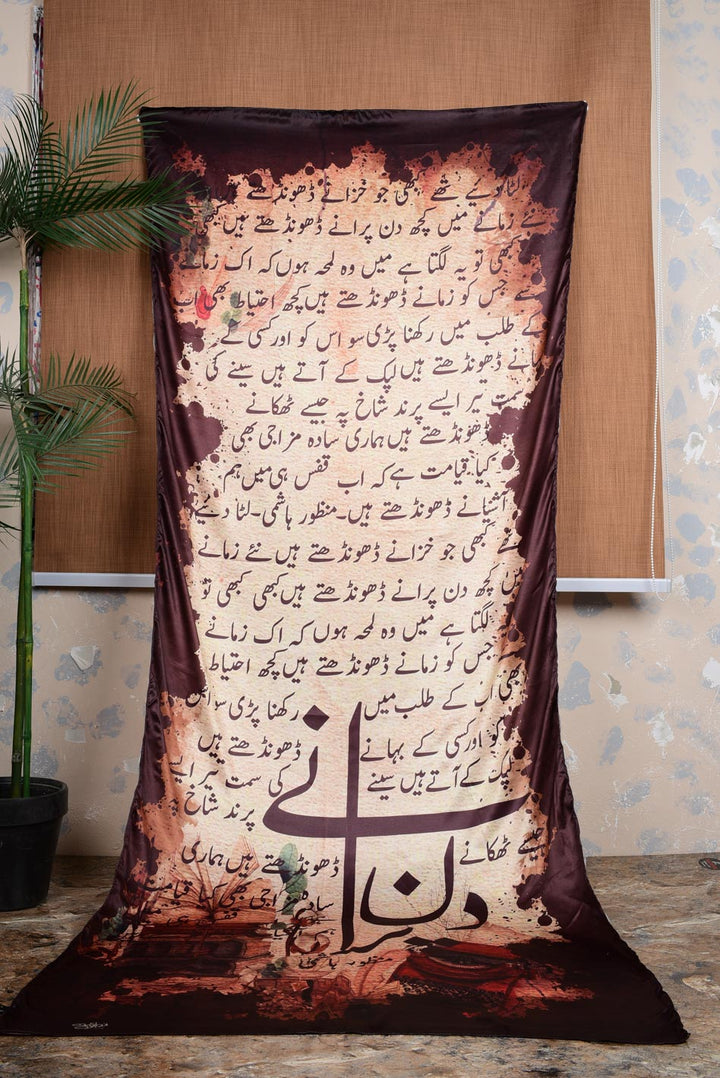 لٹا دیے تھے کبھی جو خزانے ڈھونڈھتے
نئے زمانے میں کچھ دن پرانے ڈھونڈھتے ہیں کبھی
کبھی تو یہ لگتا ہے میں وہ لمحہ ہوں کہ اک زمانے
سے جس کو زمانے ڈھونڈھتے ہیں کچھ احتیاط بھی اب
کے طلب میں رکھنا پڑی سو اس کو اور کسی کے
بہانے ڈھونڈھتے ہیں لپک کے آتے ہیں سینے کی
سمت تیر ایسے پرند شاخ پہ جیسے ٹھکانے
ڈھونڈھتے ہیں ہماری سادہ مزاجی بھی
کیا قیامت ہے کہ اب قفس ہی میں ہم
آشیانے ڈھونڈھتے ہیں۔ منظور ہاشمی۔ لٹا دیے
تھے کبھی جو خزانے ڈھونڈھتے ہیں نئے زمانے
میں کچھ دن پرانے ڈھونڈھتے ہیں کبھی کبھی تو
یہ لگتا ہے میں وہ لمحہ ہوں کہ اک زمانے
سے جس کو زمانے ڈھونڈھتے ہیں کچھ احتیاط
بھی اب کے طلب میں رکھنا پڑی سو اس
کو اور کسی کے بہانے ڈھونڈھتے ہیں
لپک کے آتے ہیں سینے کی سمت تیر ایسے
پرند شاخ پہ
جیسے ٹھکانے ڈھونڈھتے ہیں ہماری
سادہ مزاجی بھی کیا قیامت
دن پرانے